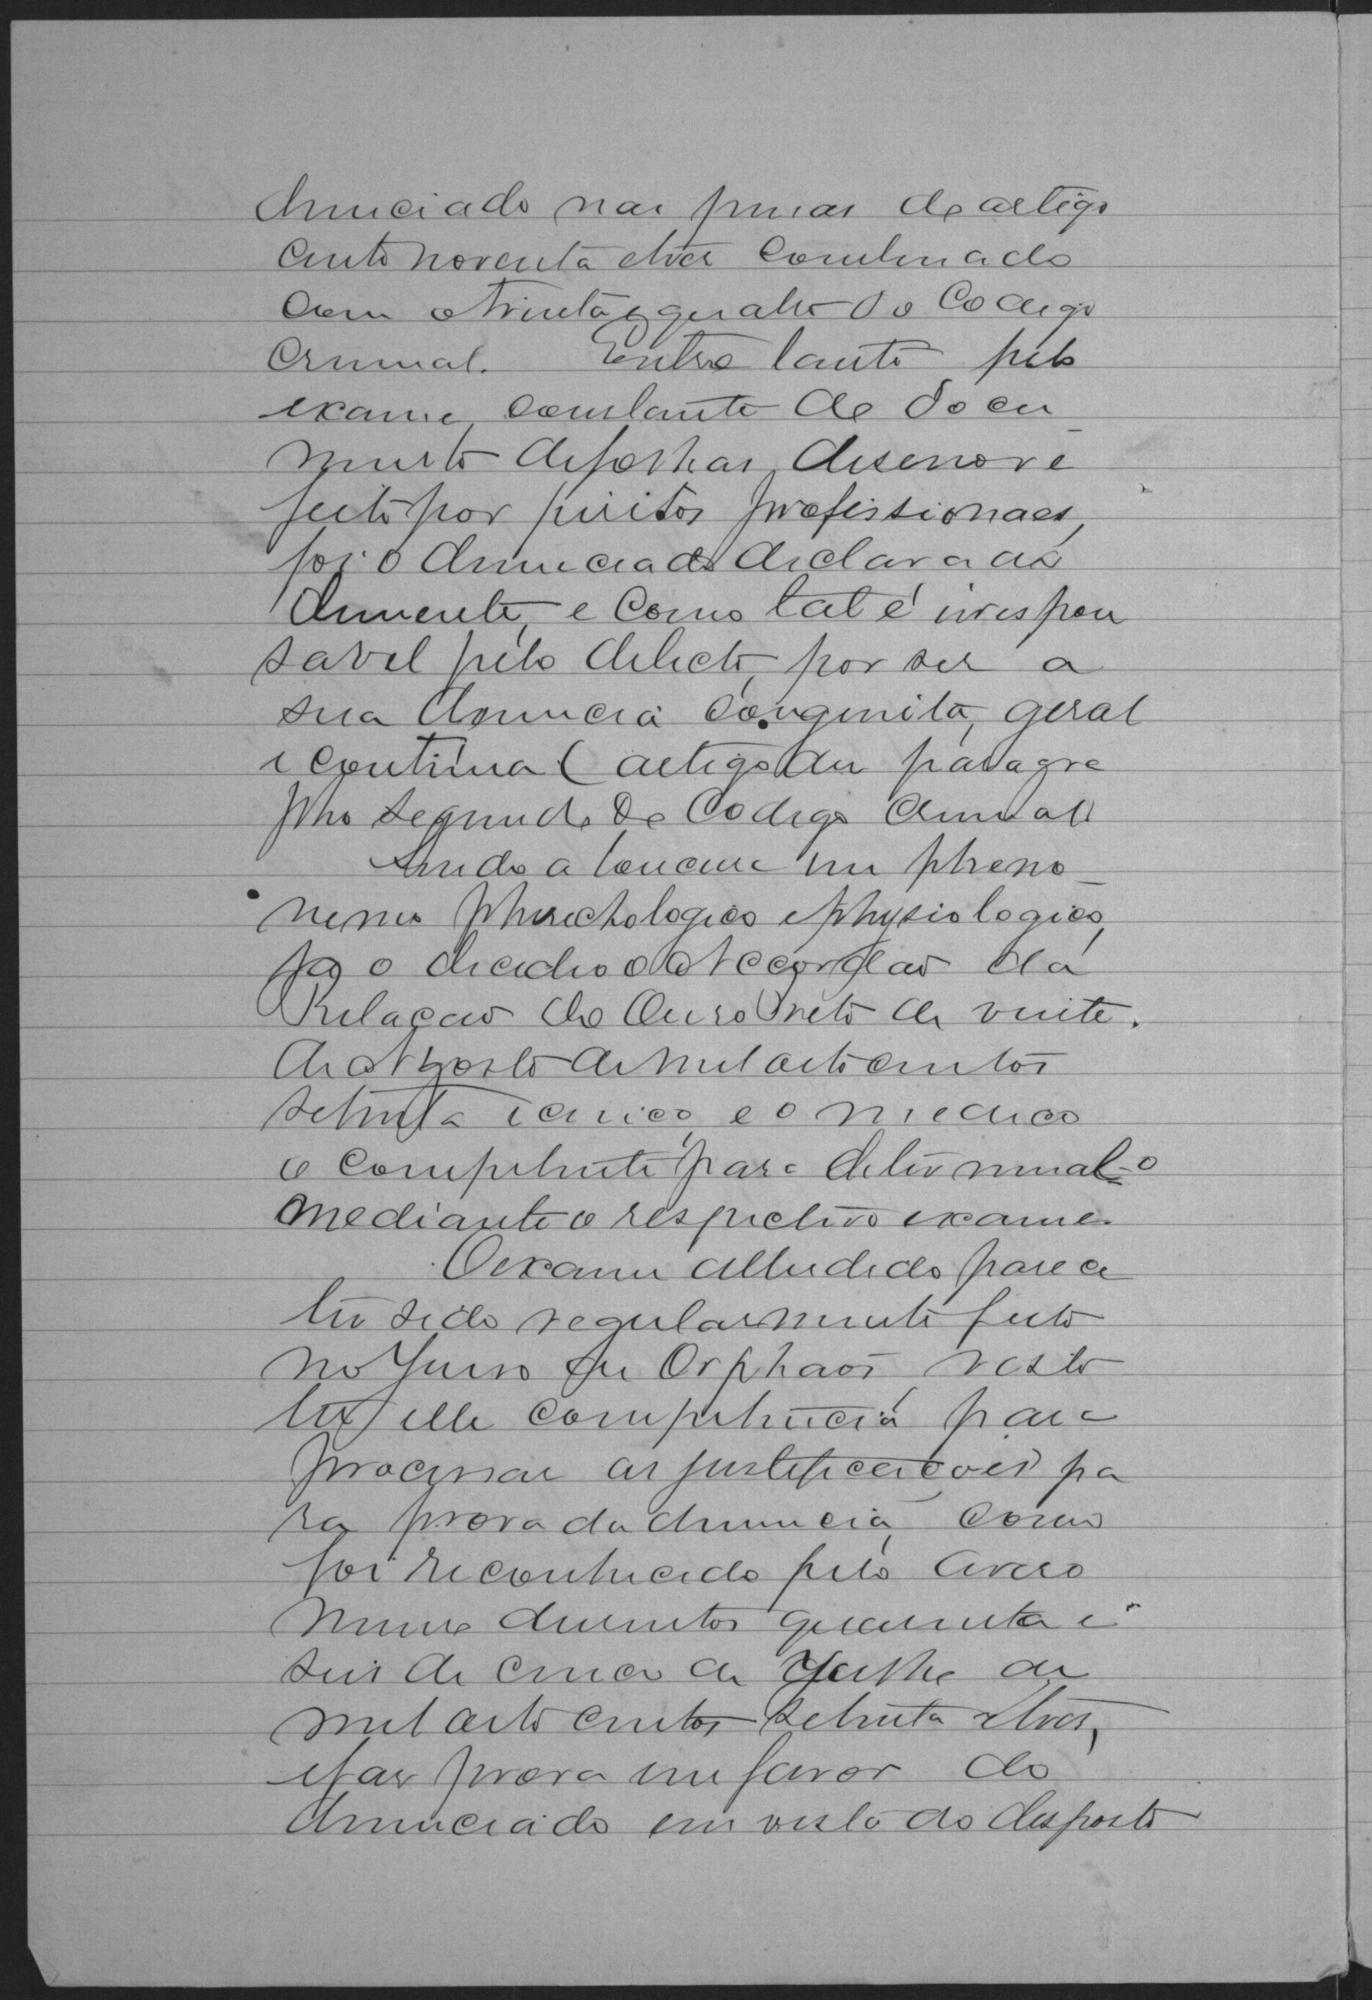 denunciado nas penas do artigo
cento noventa e tres combinado
com o trinta e quatro do Codigo
Criminal. Entre tanto pelo
exame, constante do docu
mento de folhas desenove
feito por peritos profissionaes,
foi o denunciado declarado
demente, e como tal é irrespon
savel pelo delicto, por ser a
sua demencia congenita, geral
e continua (artigo dez paragra
pho segundo do Codigo Criminal)
Sendo a loucura um pheno
meno phsichologico e physiologico,
ja o decidio o Accordão da
Relação do Ouro Preto de vinte
de Agosto de mil oito centos
setenta e cinco, e o medico
o competente para determinal-o
mediante o respectivo exame.
O exame alludido parece
ter sido regularmente feito
no Juiso de Orphãos, visto
ter elle competencia para
processar as justificações pa
ra prova da demencia, como
foi reconhecido pelo aviso
numero dusentos quarenta e
seis de cinco de Julho de
mil oito centos setenta e tres,
e faz prova em favor do
denunciado em vista do disposto